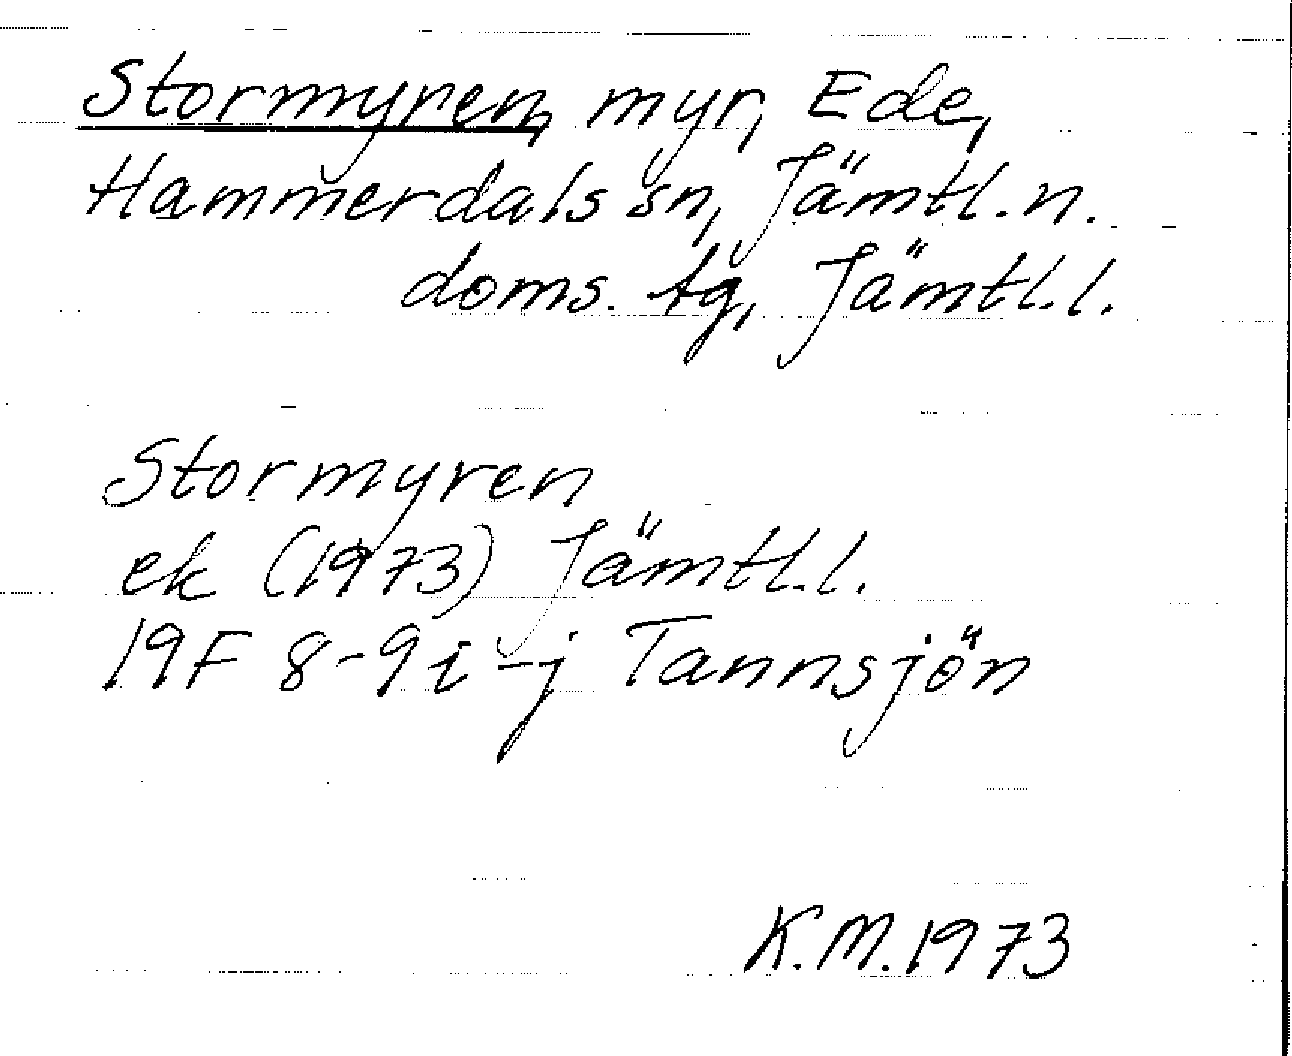 Stormyren, myr, Ede,
Hammerdals sn, Jämtl. n.
doms. tg, Jämtl. l.
Stormyren
ek (1973) Jämtl. l.
19F 8-9 i-j Tannsjön
K.M. 1973